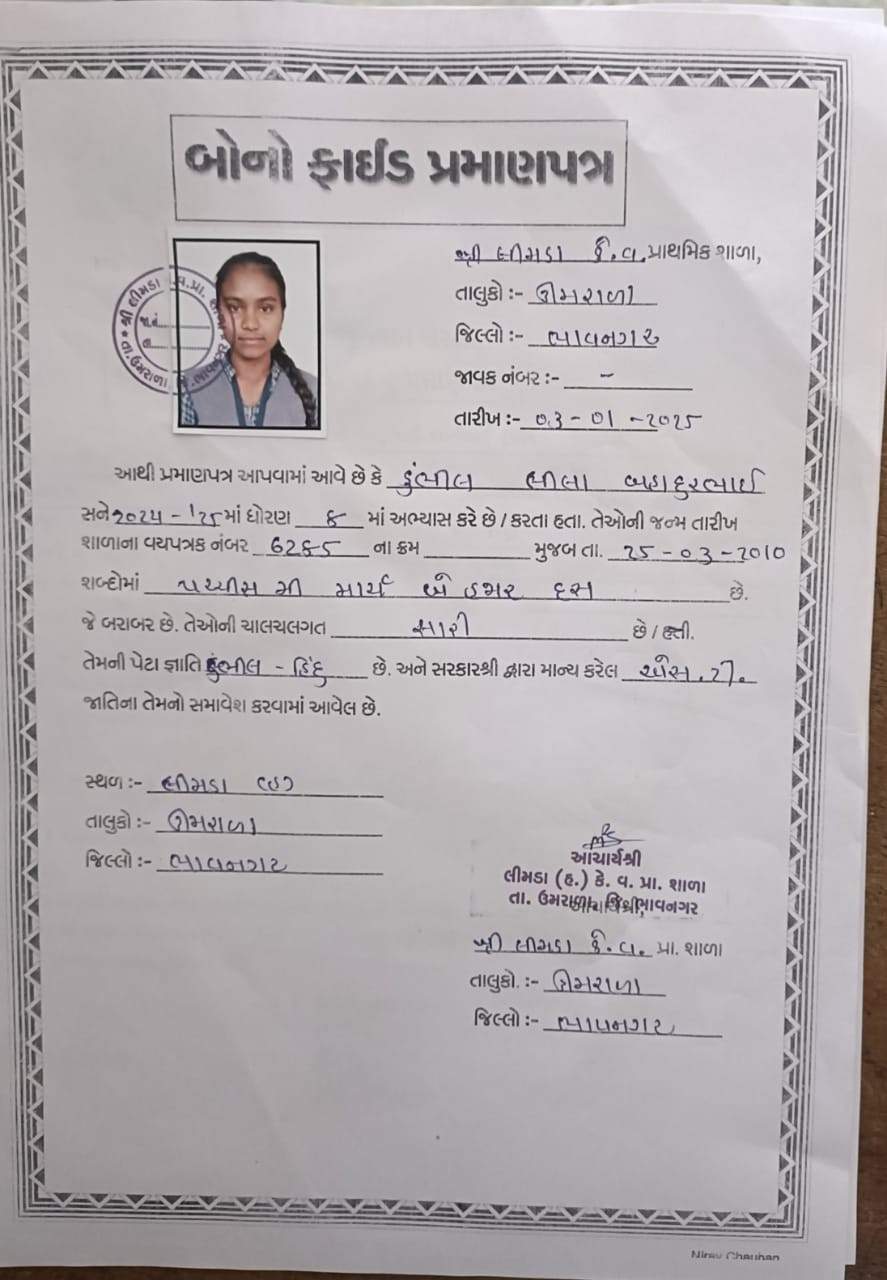 બોનો ફાઈડ પ્રમાણપત્ર
શ્રી લીમડા કે.વ. પ્રાથમિક શાળા,
તાલુકો :- ઉમરાળા
જિલ્લો :- ભાવનગર
જાવક નંબર :- -
તારીખ :- 03-01-2025
શ્રી લીમડા
વ.પ્રા.
જા.નં.
તા.ઉમરાળા
આથી પ્રમાણપત્ર આપવામાં આવે છે કે લીલા બહાદુરભાઈ
સને 2024-25 માં ધોરણ 8 માં અભ્યાસ કરે છે / કરતા હતા. તેઓની જન્મ તારીખ
શાળાના વયપત્રક નંબર 6285 ના ક્રમ મુજબ તા. 25-03-2010
શબ્દોમાં પચ્ચીસ મી માર્ચ બે હજાર દસ છે.
જે બરાબર છે. તેઓની ચાલચલગત સારી છે / હતી.
તેમની પેટા જ્ઞાતિ - હિંદુ છે. અને સરકારશ્રી દ્વારા માન્ય કરેલ એસ.ટી.
જાતિના તેમનો સમાવેશ કરવામાં આવેલ છે.
સ્થળ :- લીમડા
તાલુકો :- ઉમરાળા
જિલ્લો :- ભાવનગર
આચાર્યશ્રી
લીમડા (હ.) કે. વ. પ્રા. શાળા
તા. ઉમરાળા, જિ. ભાવનગર
શ્રી લીમડા કે.વ. પ્રા. શાળા
તાલુકો. :- ઉમરાળા
જિલ્લો :- ભાવનગર
Nirav Chauhan